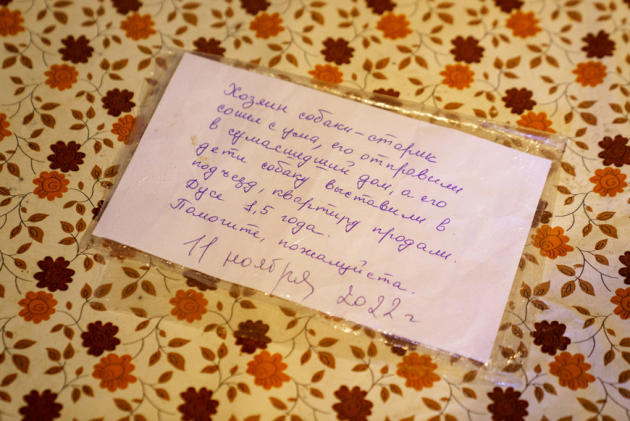 Хозяин собаки-старик
сошел с ума, его отправили
в сумасшедший дом, а его
дети собаку выставили в
подъезд, квартиру продали.
Дусе 1,5 года.
Помогите, пожалуйста.
11 ноября 2022 г